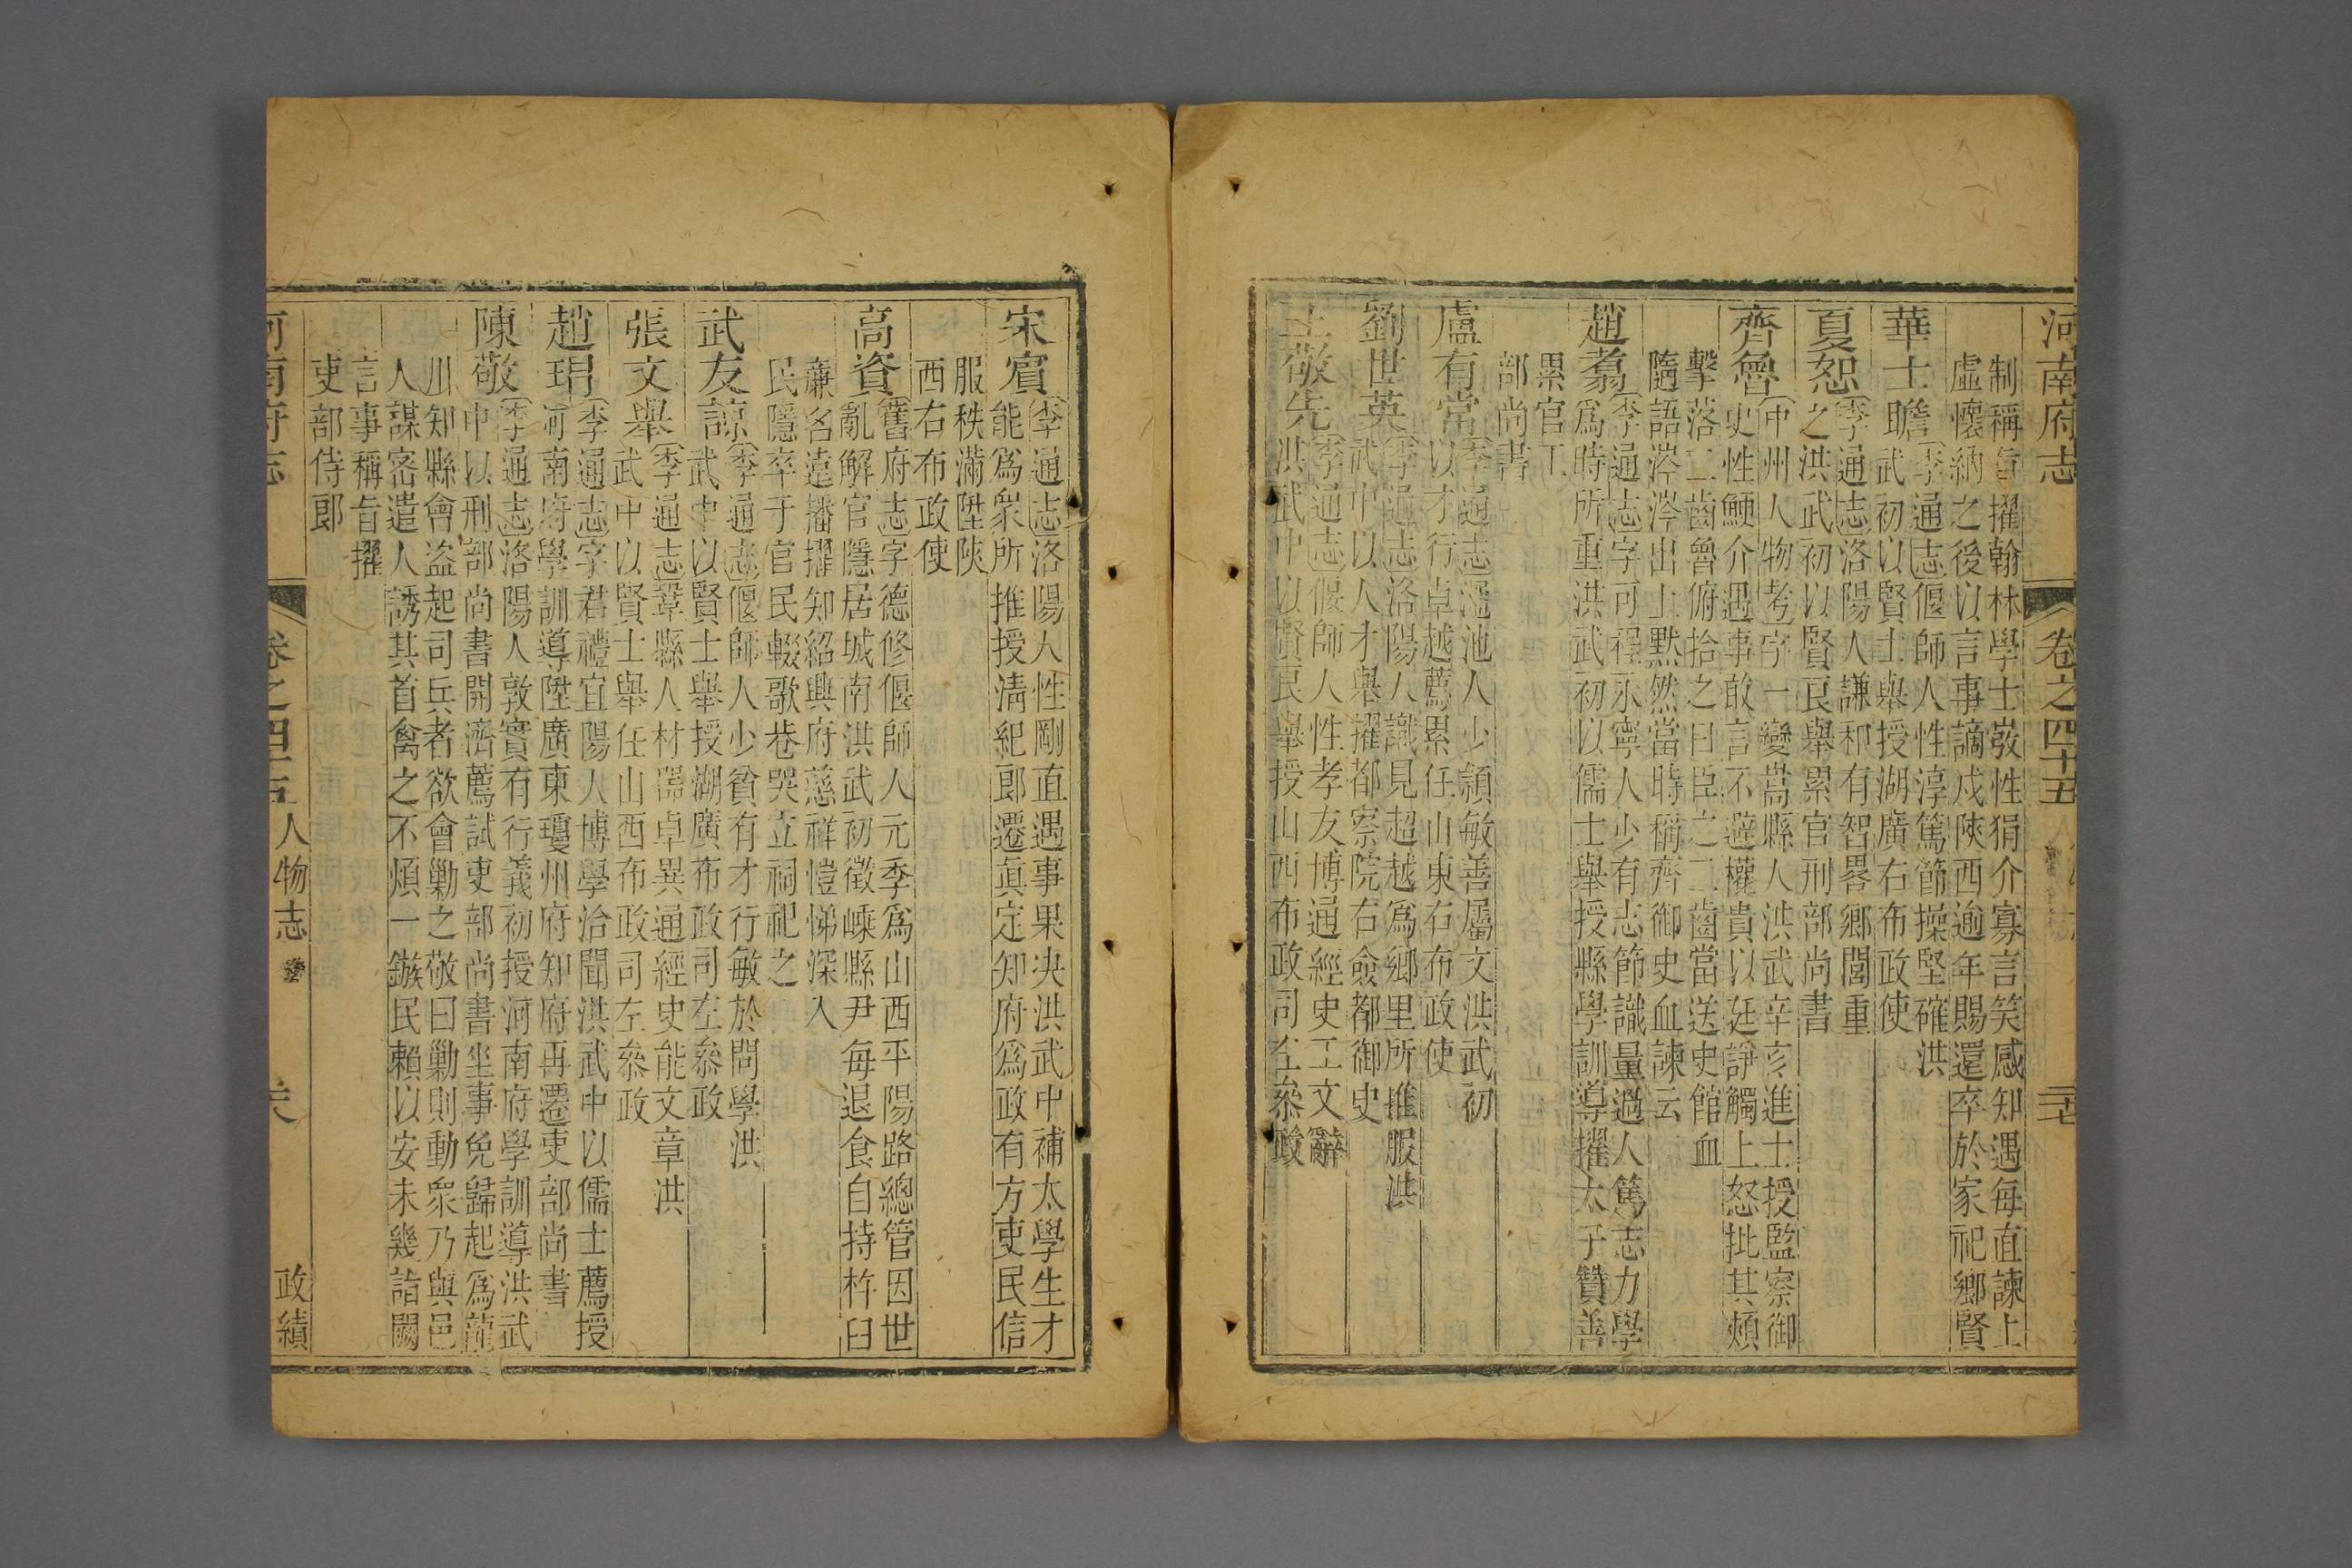 河南府志
卷之四十五
制稱旨擢翰林學士敩性狷介寡言笑感知遇每直諫上
虛懷納之後以言事謫戍陝西逾年賜還卒於家祀鄉賢
華士瞻李通志偃師人性淳篤節操堅確洪
武初以賢士舉授湖廣右布政使
夏恕李通志洛陽人謙和有智畧鄉閭重
之洪武初以賢良舉累官刑部尚書
齊魯中州人物考字一變嵩縣人洪武辛亥進士授監察御
史性鯁介遇事敢言不避權貴以廷諍觸上怒批其頰
擊落二齒魯俯拾之曰臣之二齒當送史館血
隨語涔涔出上默然當時稱齊御史血諫云
趙翥李通志字可程永寧人少有志節識量過人篤志力學
爲時所重洪武初以儒士舉授縣學訓導擢太子贊善
累官工
部尚書
盧有常李通志澠池人少頴敏善屬文洪武初
以才行卓越薦累任山東右布政使
劉世英李通志洛陽人識見超越爲鄉里所推服洪
武中以人才舉擢都察院右僉都御史
王敬先李通志偃師人性孝友博通經史工文辭
洪武中以賢良舉授山西布政司左叅政
宋賓李通志洛陽人性剛直遇事果决洪武中補太學生才
能爲衆所推授清紀郎遷眞定知府爲政有方吏民信
服秩滿陞陝
西右布政使
高資舊府志字德修偃師人元季爲山西平陽路總管因世
亂解官隱居城南洪武初徵嵊縣尹每退食自持杵臼
亷名遠播擢知紹興府慈祥愷悌深入
民隱卒于官民輟歌巷哭立祠祀之
武友諒李通志偃師人少貧有才行敏於問學洪
武中以賢士舉授湖廣布政司左叅政
張文舉李通志鞏縣人材器卓異通經史能文章洪
武中以賢士舉任山西布政司左叅政
趙珥李通志字君禮宜陽人博學洽聞洪武中以儒士薦授
河南府學訓導陞廣東瓊州府知府再遷吏部尚書
陳敬李通志洛陽人敦實有行義初授河南府學訓導洪武
中以刑部尚書開濟薦試吏部尚書坐事免歸起爲龍
川知縣會盜起司兵者欲會勦之敬曰勦則動衆乃與邑
人謀密遣人誘其首禽之不煩一鏃民賴以安未幾詣闕
言事稱旨擢
吏部侍郎
河南府志
卷之四十五
人物志
政績